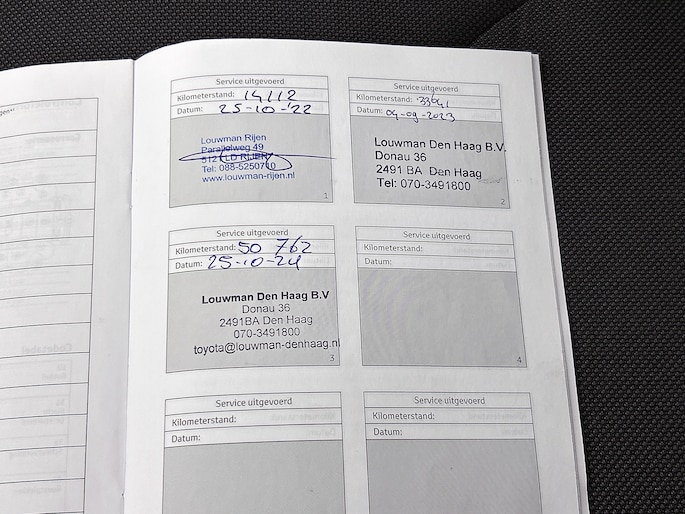 Service uitgevoerd
Kilometerstand: 14112
Datum: 25-10-'22
Louwman Rijen
Parallelweg 49
LD RIJEN
Tel: 088-5250710
www.louwman-rijen.nl
1
Service uitgevoerd
Kilometerstand: 33941
Datum: 04-09-2023
Louwman Den Haag B.V.
Donau 36
2491 BA Den Haag
Tel: 070-3491800
2
Service uitgevoerd
Kilometerstand: 50 762
Datum: 25-10-24
Louwman Den Haag B.V
Donau 36
2491BA Den Haag
070-3491800
toyota@louwman-denhaag.nl
3
Service uitgevoerd
Kilometerstand:
Datum:
4
Service uitgevoerd
Kilometerstand:
Datum:
Service uitgevoerd
Kilometerstand:
Datum: